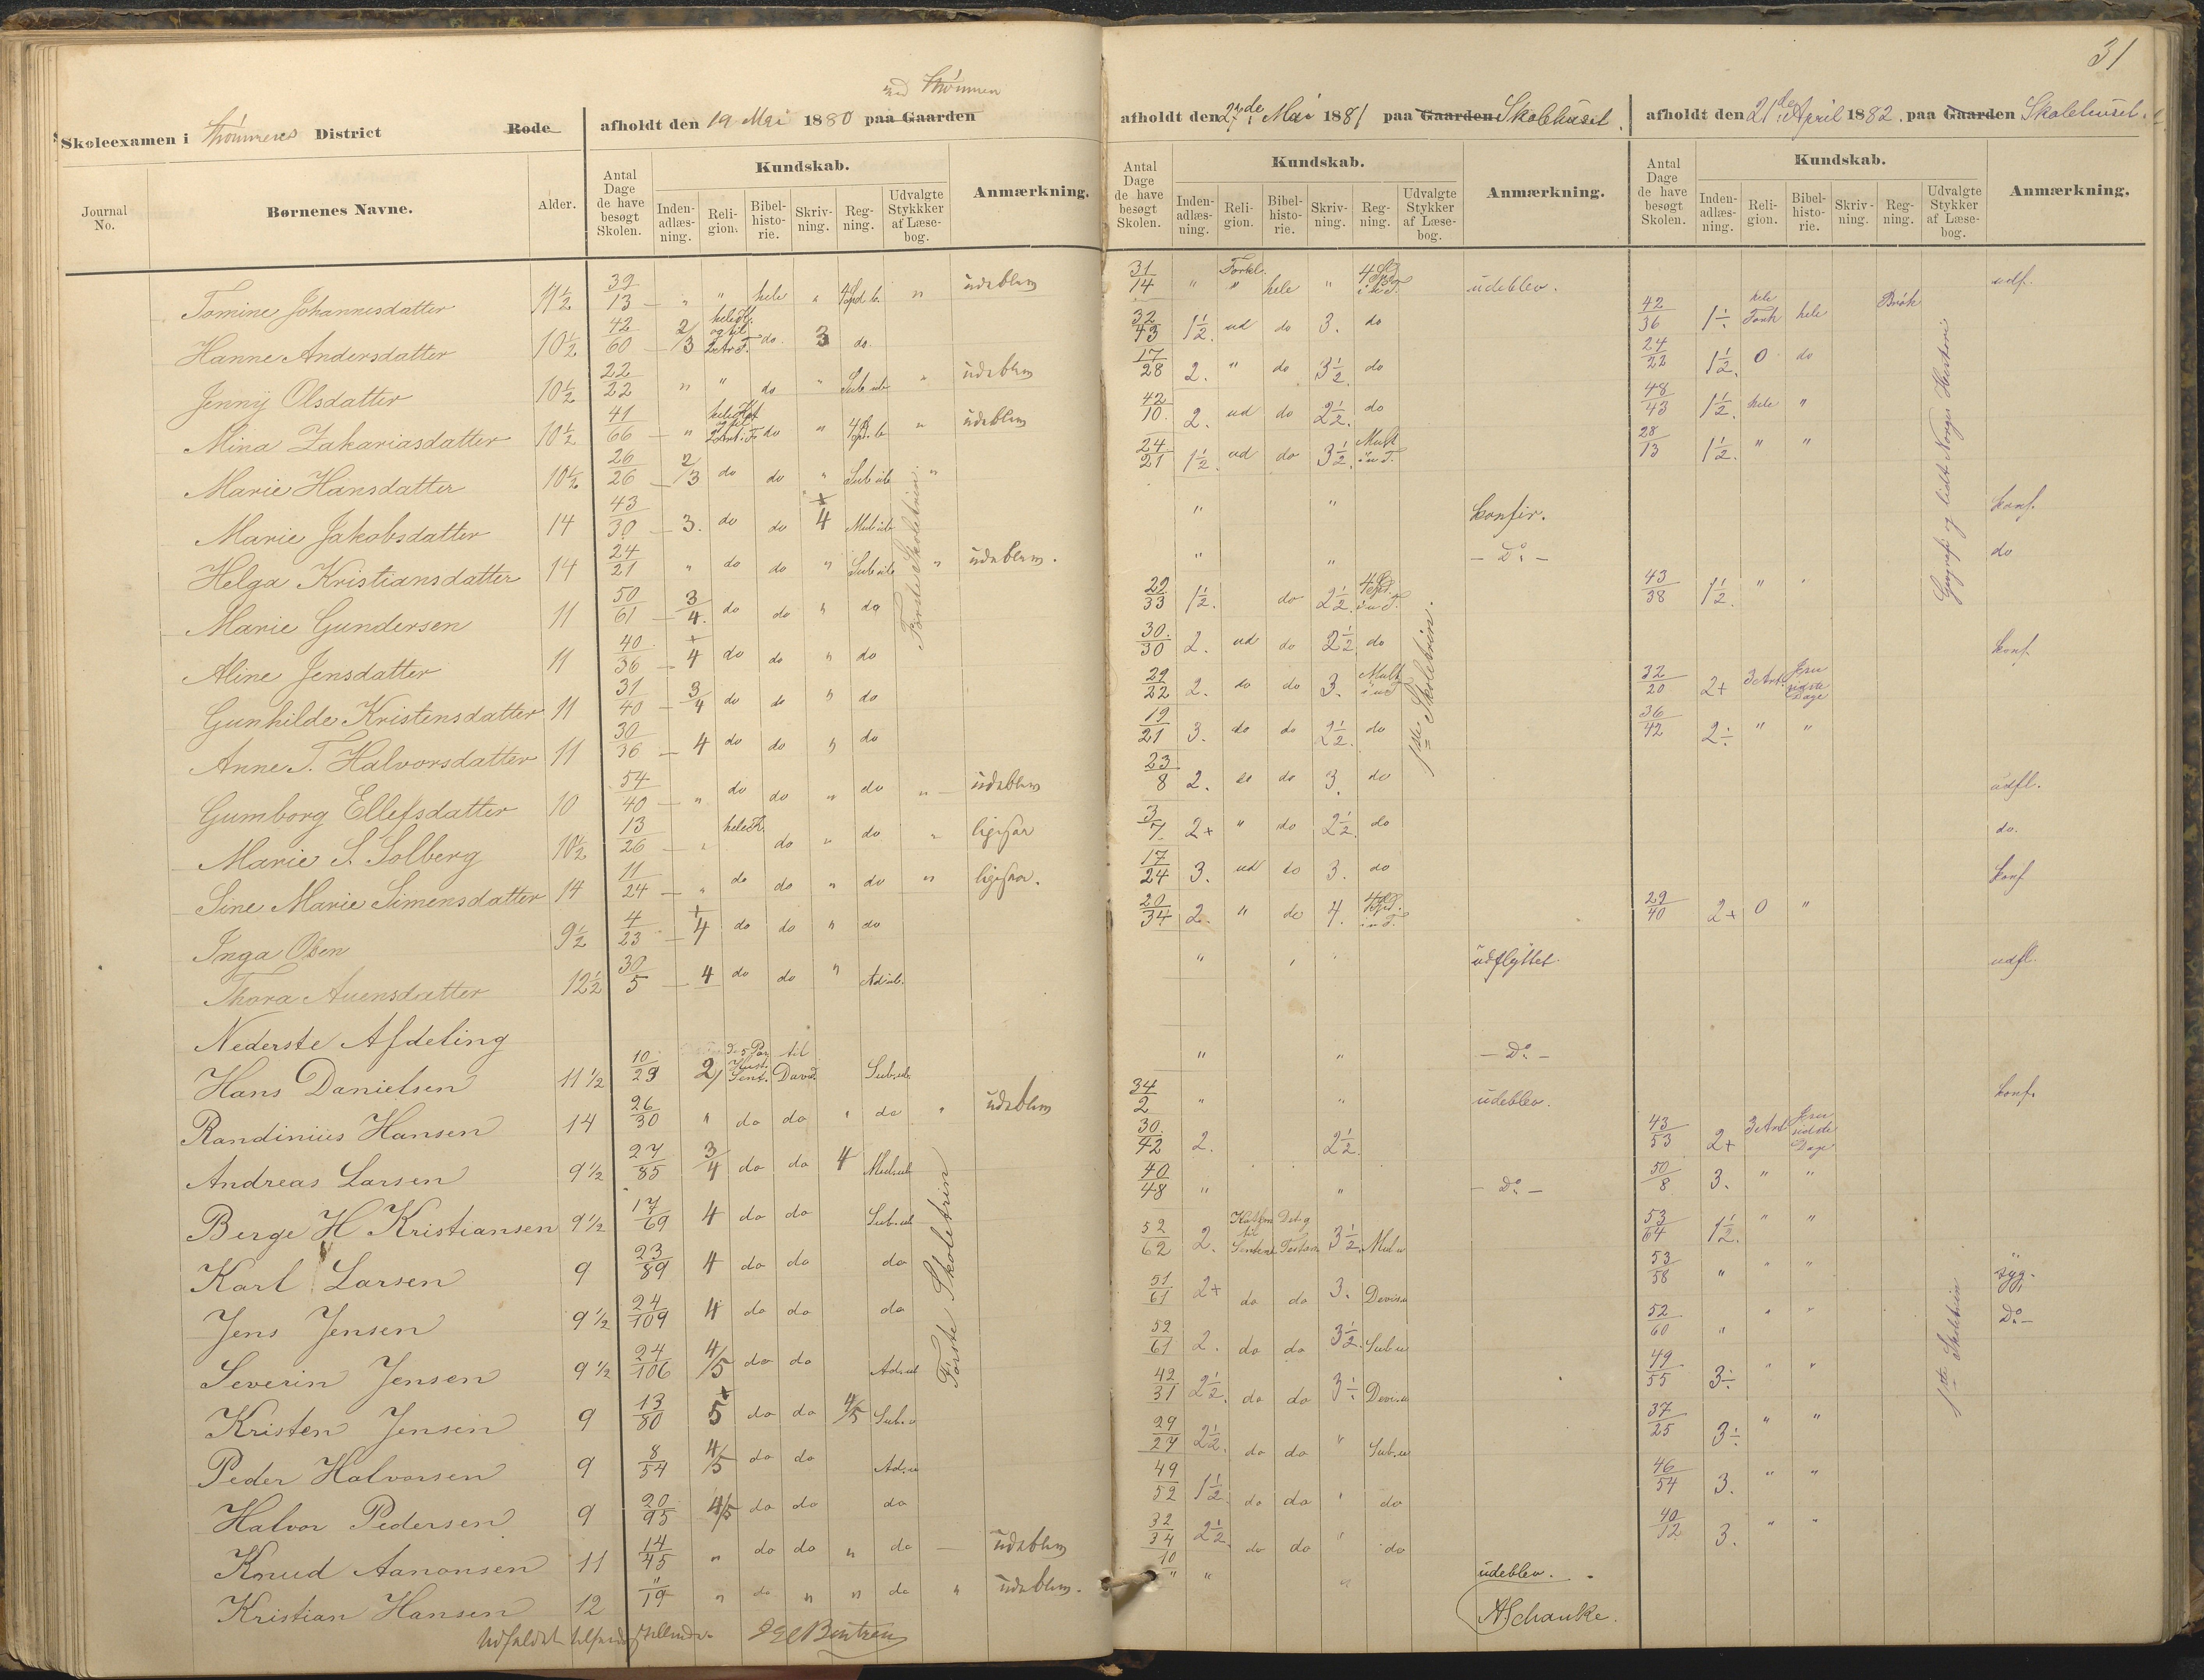 31
ved Strømmen
Skoleexamen i Strømmens District Rode afholdt den 19 Mai 1880 paa Gaarden
afholdt den 27de Mai 1881 paa Gaarden Skolehuset.
afholdt den 21de April 1882. paa Gaarden Skolehuset.
Journal No. Børnenes Navne. Alder. Antal Dage de have besøgt Skolen. Kundskab. Inden-adlæs-ning. Reli-gion. Bibel-histo-rie. Skriv-ning. Reg-ning. Udvalgte Stykkker af Læse-bog. Anmærkning.
Antal Dage de have besøgt Skolen. Kundskab. Inden-adlæs-ning. Reli-gion. Bibel-histo-rie. Skriv-ning. Reg-ning. Udvalgte Stykker af Læse-bog. Anmærkning.
Antal Dage de have besøgt Skolen. Kundskab. Inden-adlæs-ning. Reli-gion. Bibel-histo-rie. Skriv-ning. Reg-ning. Udvalgte Stykker af Læse-bog. Anmærkning.
Tomine Johannesdatter 11½ 39/13 " " hele " " udebleven 31/14 " Forkl. " hele " udeblev. udf.
Hanne Andersdatter 10½ 42/60 2/3 do. 3 do. 32/43 1½ ud do 3. do 42/36 1÷ hele Fork hele Brøk
Jenny Olsdatter 10½ 22/22 " " do " Sub. ub " udebleven 17/28 2. " do 3½ do 24/22 1½. 0 do
Mina Zakariasdatter 10½ 41/66 " do " " udebleven 42/10. 2. ud do 2½. do 48/43 1½. hele "
Marie Hansdatter 10½ 26/26 2/3 do do " Sub ub " 24/21 1½. ud do 3½. Mult i u T. 28/13 1½. " "
Marie Jakobsdatter 14 43/30 3. do do 4 Mul ub " " konfir. konf.
Helga Kristiansdatter 14 24/21 " do do " Sub ub " udebleven. " " - Do. - do
Marie Gundersen 11 50/61 3/4. do do " do 22/33 1½. do 2½. 43/38 1½. " "
Aline Jensdatter 11 40/36 4 do do " do 30./30 2. ud do 2½ do konf
Gunhilde Kristensdatter 11 31/40 3/4 do do " do 29/22 2. do do 3. Mult i u T 32/20 2+ 3 Art. Jesu sidste Dage
Anne T. Halvorsdatter 11 30/36 4 do do " do 19/21 3. do do 2½. do 36/42 2÷ " "
Gumborg Ellefsdatter 10 54/40 " do do " do " udebleven 23/8 2. do do 3. do udfl.
Marie S. Solberg 10½ 13/26 " hele do " do " ligesaa 3/7 2+ " do 2½. do do.
Sine Marie Simensdatter 14 11/24 " do do " do " ligesaa. 17/24 3. ud do 3. do konf
Inga Olsen 9½ 4/23 4 do do " do 20/34 2. " do 4. 29/40 2+ 0 "
Thora Auensdatter 12½ 30/5 4 do do " Ad. ub. " " " udflyttet. udfl.
Første Skoletrin.
1ste Skoletrin.
Geografi og lidt Norges Historie
Nederste Afdeling
Hans Danielsen 11½ 10/29 2/ til David. Sub. ub " " - Do. -
Randinius Hansen 14 26/30 " do do " do " udebleven 34/2 " " udeblev. konf.
Andreas Larsen 9½ 27/85 3/4 do do 4 Mul. ub 30./42 2. 2½. 43/53 2+ 3 Art Jesu sidste Dage
Berge H Kristiansen 9½ 17/69 4 do do Sub. ub 40/48 " " - Do. - 50/8 3. " "
Karl Larsen 9 23/89 4 do do do 52/62 2. 3½. Mul u 53/64 1½. " "
Jens Jensen 9½ 24/109 4 do do do 51/61 2+ do do 3. Devis. u 53/58 " " " syg.
Severin Jensen 9½ 24/106 4/5 do do Ad. ub 52/61 2. do do 3½. Sub u 52/60 " " " Do. -
Kristen Jensen 9 13/80 5 do do 4/5 Sub. u 42/31 2½. do do 3÷ Devis. u 49/55 3÷ " "
Peder Halvorsen 9 8/54 4/5 do do Ad. u 29/27 2½. do do " Sub. u 37/25 3÷ " "
Halvor Pedersen 9 20/95 4/5 do do do 49/52 1½. do do " do 46/54 3. " "
Knud Aanonsen 11 14/45 " do do " do udebleven 32/34 2½. do do " do 40/12 3. " "
Kristian Hansen 12 "/19 " do " " do " udebleven. 10/" " " udeblev.
Første Skoletrin
1ste Skoletrin
ASchanke.